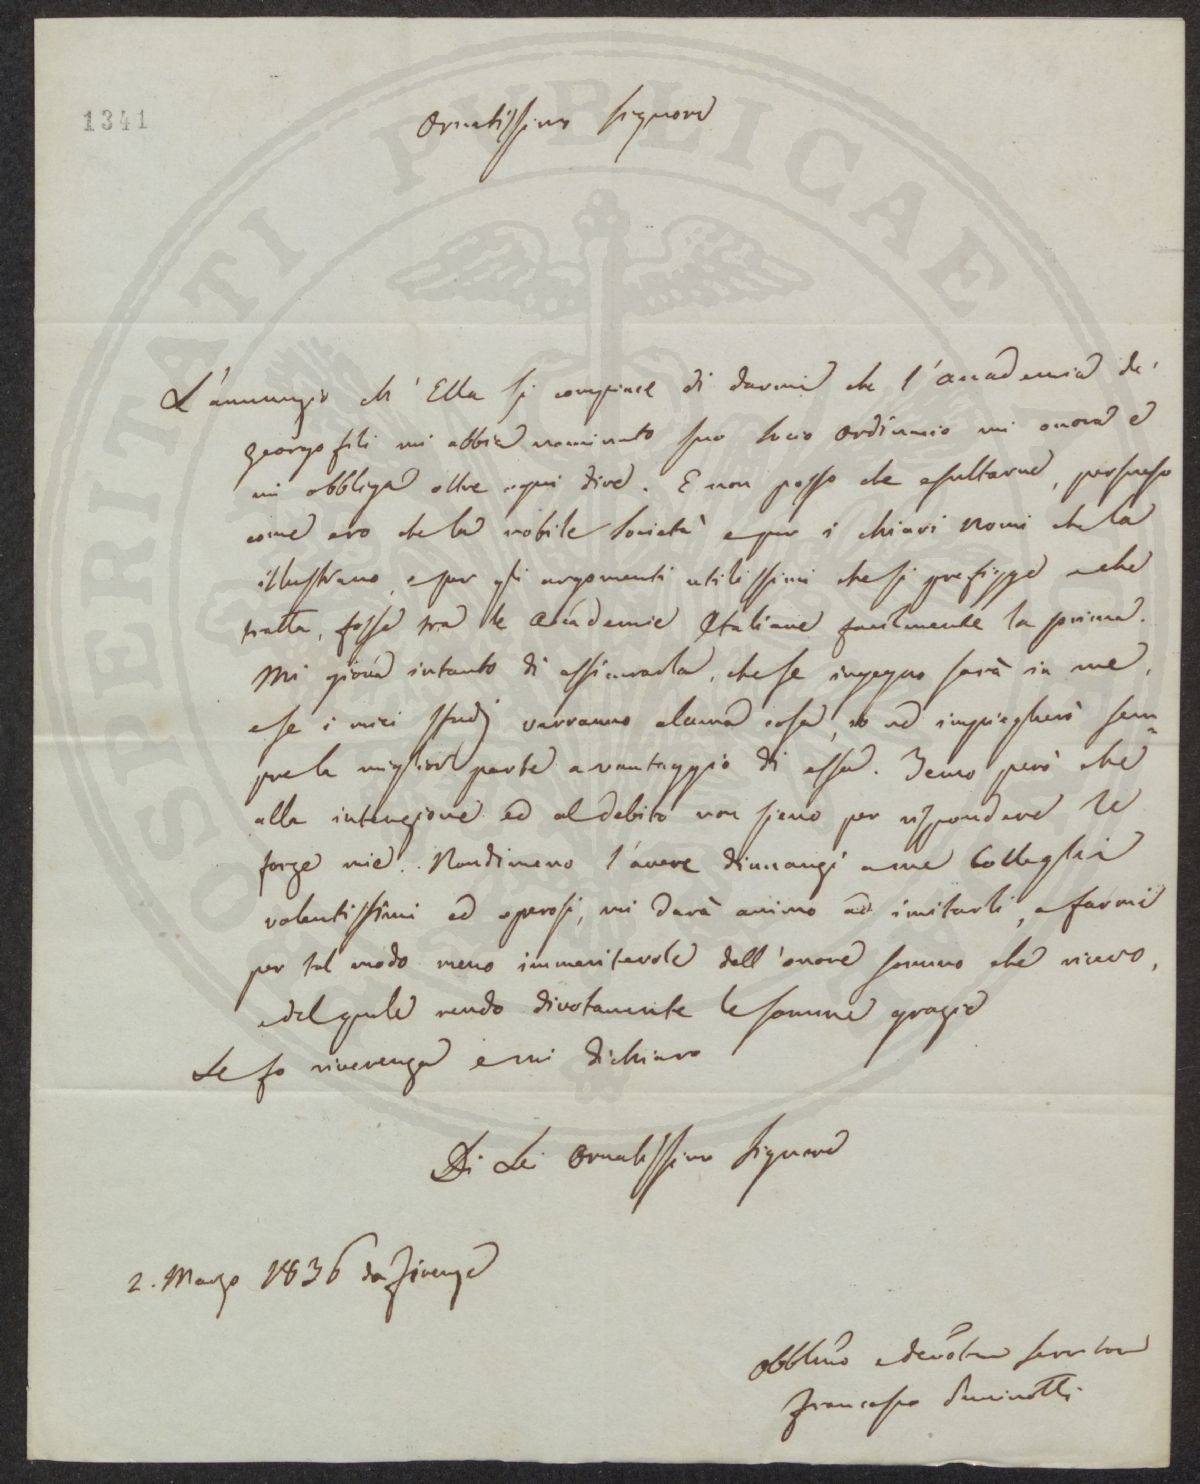 1341
Ornatissimo Signore
L'annunzio ch' Ella si compiace di darmi che l'Accademia de'
Georgofili mi abbia nominato suo Socio Ordinario mi onora e
mi obbliga oltre ogni dire. E non posso che esultarne, persuaso
come ero che la nobile Società e per i chiari Nomi che la
illustrano, e per gli argomenti utilissimi che si prefigge e che
tratta, fosse tra le Accademie Italiane facilmente la prima.
Mi giova intanto di assicurarla, che se ingegno sarà in me,
e se i miei studj varranno alcuna cosa, io ne impiegherò sem=
pre la miglior parte a vantaggio di essa. Temo però che
alla intenzione ed al debito non sieno per rispondere le
forze mie. Nondimeno l'avere dinnanzi a me Colleghi
valentissimi ed operosi, mi darà animo ad imitarli, e farmi
per tal modo meno immeritevole dell'onore sommo che ricevo,
e del quale rendo divotamente le somme grazie
Le fo riverenza e mi dichiaro
Di Lei Ornatissimo Signore
2. Marzo 1836 da Firenze
Obblmo e devotmo servitore
Francesco Puccinotti
PROSPERITATI PUBLICAE AUGENDAE